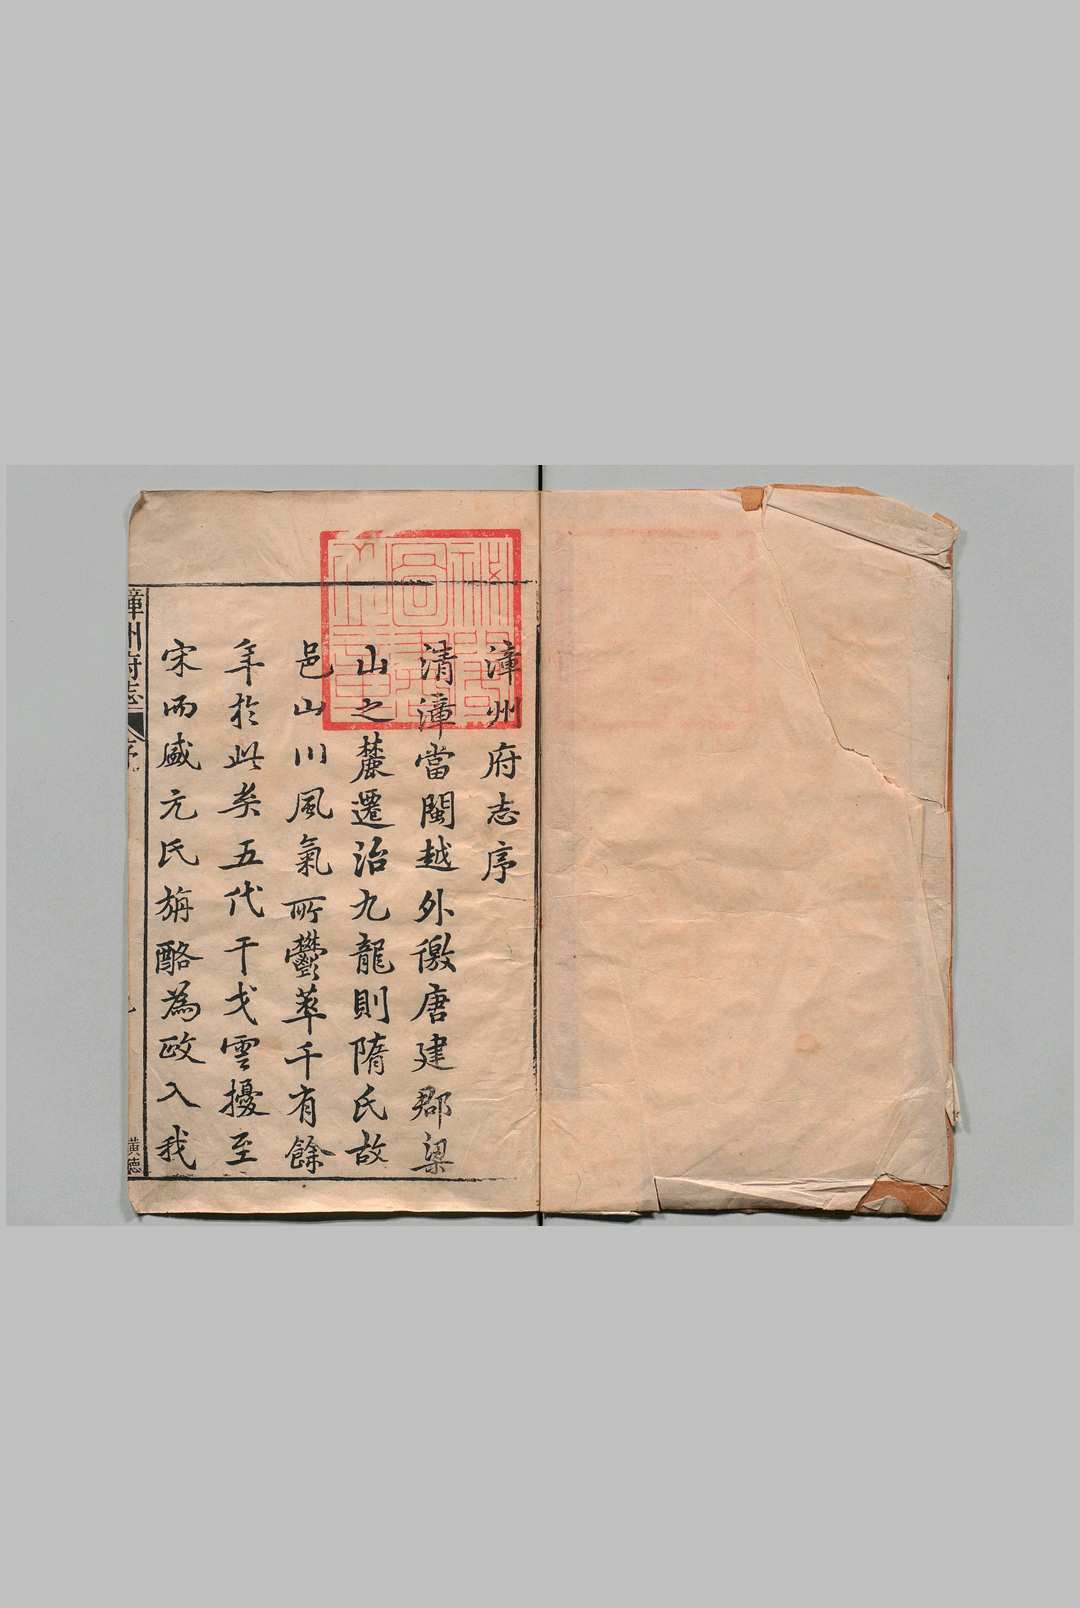 漳州府志序
清漳當閩越外徼唐建郡梁
山之麓遷治九龍則隋氏故
邑山川風氣所鬱萃千有餘
年於此矣五代干戈雲擾至
宋而盛元氏旃酪為政入我
漳州府志
序
黃德